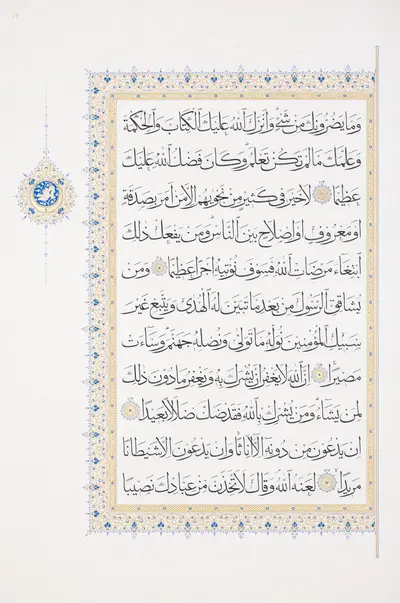 وَمَا يَضُرُّونَكَ مِنْ شَيْءٍ وَأَنْزَلَ اللَّهُ عَلَيْكَ الْكِتَابَ وَالْحِكْمَةَ
وَعَلَّمَكَ مَا لَمْ تَكُنْ تَعْلَمُ وَكَانَ فَضْلُ اللَّهِ عَلَيْكَ
عَظِيمًا لَا خَيْرَ فِي كَثِيرٍ مِنْ نَجْوَاهُمْ إِلَّا مَنْ أَمَرَ بِصَدَقَةٍ
أَوْ مَعْرُوفٍ أَوْ إِصْلَاحٍ بَيْنَ النَّاسِ وَمَنْ يَفْعَلْ ذَلِكَ
ابْتِغَاءَ مَرْضَاتِ اللَّهِ فَسَوْفَ نُؤْتِيهِ أَجْرًا عَظِيمًا وَمَنْ
يُشَاقِقِ الرَّسُولَ مِنْ بَعْدِ مَا تَبَيَّنَ لَهُ الْهُدَى وَيَتَّبِعْ غَيْرَ
سَبِيلِ الْمُؤْمِنِينَ نُوَلِّهِ مَا تَوَلَّى وَنُصْلِهِ جَهَنَّمَ وَسَاءَتْ
مَصِيرًا إِنَّ اللَّهَ لَا يَغْفِرُ أَنْ يُشْرَكَ بِهِ وَيَغْفِرُ مَا دُونَ ذَلِكَ
لِمَنْ يَشَاءُ وَمَنْ يُشْرِكْ بِاللَّهِ فَقَدْ ضَلَّ ضَلَالًا بَعِيدًا
إِنْ يَدْعُونَ مِنْ دُونِهِ إِلَّا إِنَاثًا وَإِنْ يَدْعُونَ إِلَّا شَيْطَانًا
مَرِيدًا لَعَنَهُ اللَّهُ وَقَالَ لَأَتَّخِذَنَّ مِنْ عِبَادِكَ نَصِيبًا